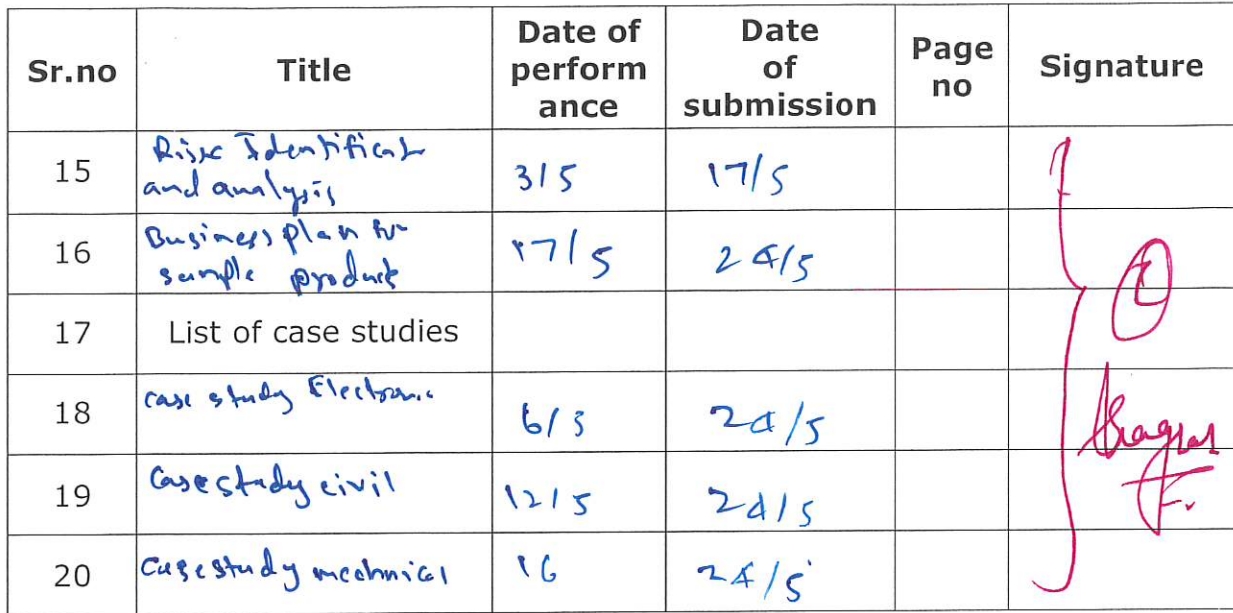 Sr.no Title Date of perform ance Date of submission Page no Signature
15 Risk Identificat and analysis 3/5 17/5
16 Business plan for sample product 17/5 24/5
17 List of case studies
18 case study Electronic 6/3 24/5
19 Case study civil 12/5 24/5
20 Case study mechnical 16 24/5